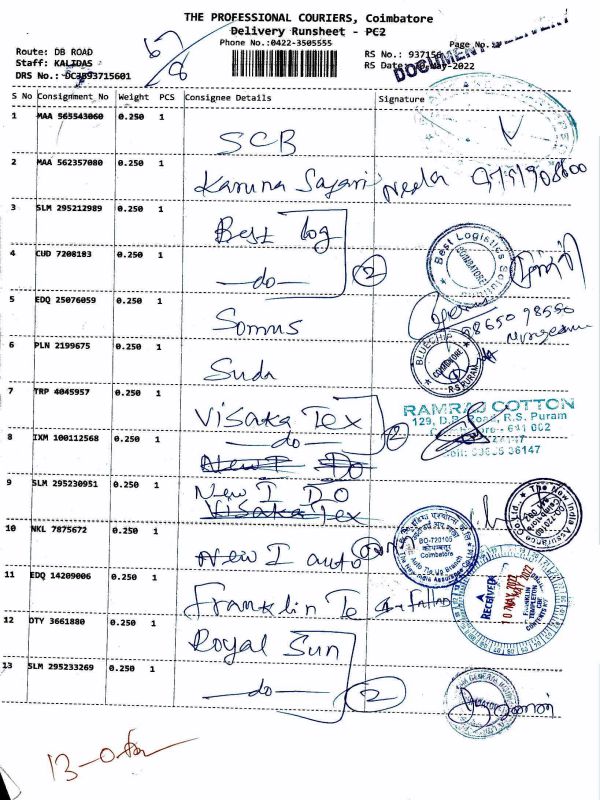 THE PROFESSIONAL COURIERS, Coimbatore
Delivery Runsheet - PC2
Phone No.:0422-3505555
Page No.:
Route: DB ROAD
Staff: KALIDAS
67/8
RS No.: 937156
RS Date: May-2022
S No Consignment No Weight PCS Consignee Details Signature
1 MAA 565543060 0.250 1
SCB
2 MAA 562357080 0.250 1
Karuna Sagari
3 SLM 295212989 0.250 1
Best log
4 CUD 7208183 0.250 1
-do- 2
Best Logistics Solutions
COIMBATORE
5 EDQ 25076059 0.250 1
Somus
98650 98550
6 PLN 2199675 0.250 1
Suda
BLUECHIP
COIMBATORE
R.S PURAM
7 TRP 4045957 0.250 1
Visaka Tex
RAMRAJ COTTON
129, D.B. Road, R.S. Puram
8 IXM 100112568 0.250 1
-do- 2
New I DO
9 SLM 295230951 0.250 1
New I DO
Visaka Tex
The New India Assurance Co
10 NKL 7875672 0.250 1
New I auto
BO-720105
Coimbatore
11 EDQ 14209006 0.250 1
Franklin Te
RECEIVED
10 MAY 2022
FRANKLIN TEMPLETON
12 OTY 3661880 0.250 1
Royal Sun
13 SLM 295233269 0.250 1
-do- 2